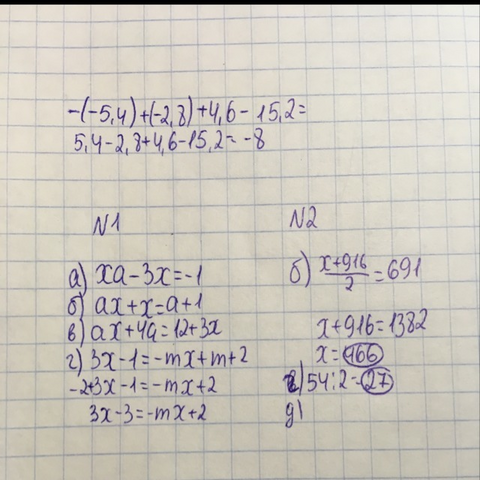 -(-5,4)+(-2,8)+4,6-15,2=
5,4-2,8+4,6-15,2=-8
N1
а) xa-3x=-1
б) ax+x=a+1
в) ax+4a=12+3x
г) 3x-1=-mx+m+2
-2+3x-1=-mx+2
3x-3=-mx+2
N2
б) \frac{x+916}{2}=691
x+916=1382
x=466
в) 54:2=27
д)